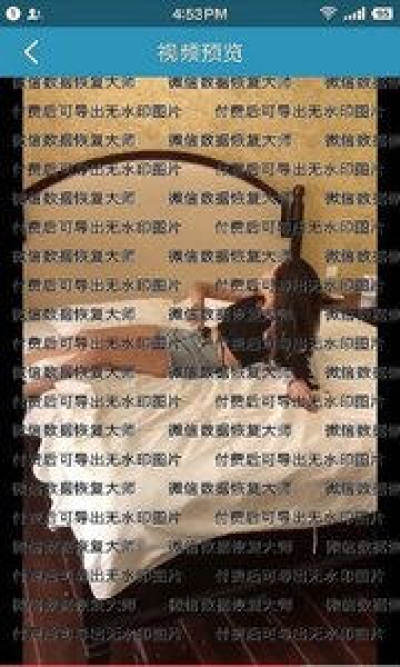 4:53PM
视频预览
微信数据恢复大师 微信数据恢复大师 微信数据恢
付费后可导出无水印图片 付费后可导出无水印图片
微信数据恢复大师 微信数据恢复大师 微信数据恢
付费后可导出无水印图片 付费后可导出无水印图片
微信数据恢复大师 微信数据恢复大师 微信数据恢
付费后可导出无水印图片 付费后可导出无水印图片
微信数据恢复大师 微信数据恢复大师 微信数据恢
付费后可导出无水印图片 付费后可导出无水印图片
微信数据恢复大师 微信数据恢复大师 微信数据恢
付费后可导出无水印图片 付费后可导出无水印图片
微信数据恢复大师 微信数据恢复大师 微信数据恢
付费后可导出无水印图片 付费后可导出无水印图片
微信数据恢复大师 微信数据恢复大师 微信数据恢
付费后可导出无水印图片 付费后可导出无水印图片
微信数据恢复大师 微信数据恢复大师 微信数据恢
付费后可导出无水印图片 付费后可导出无水印图片
微信数据恢复大师 微信数据恢复大师 微信数据恢
付费后可导出无水印图片 付费后可导出无水印图片
微信数据恢复大师 微信数据恢复大师 微信数据恢
付费后可导出无水印图片 付费后可导出无水印图片